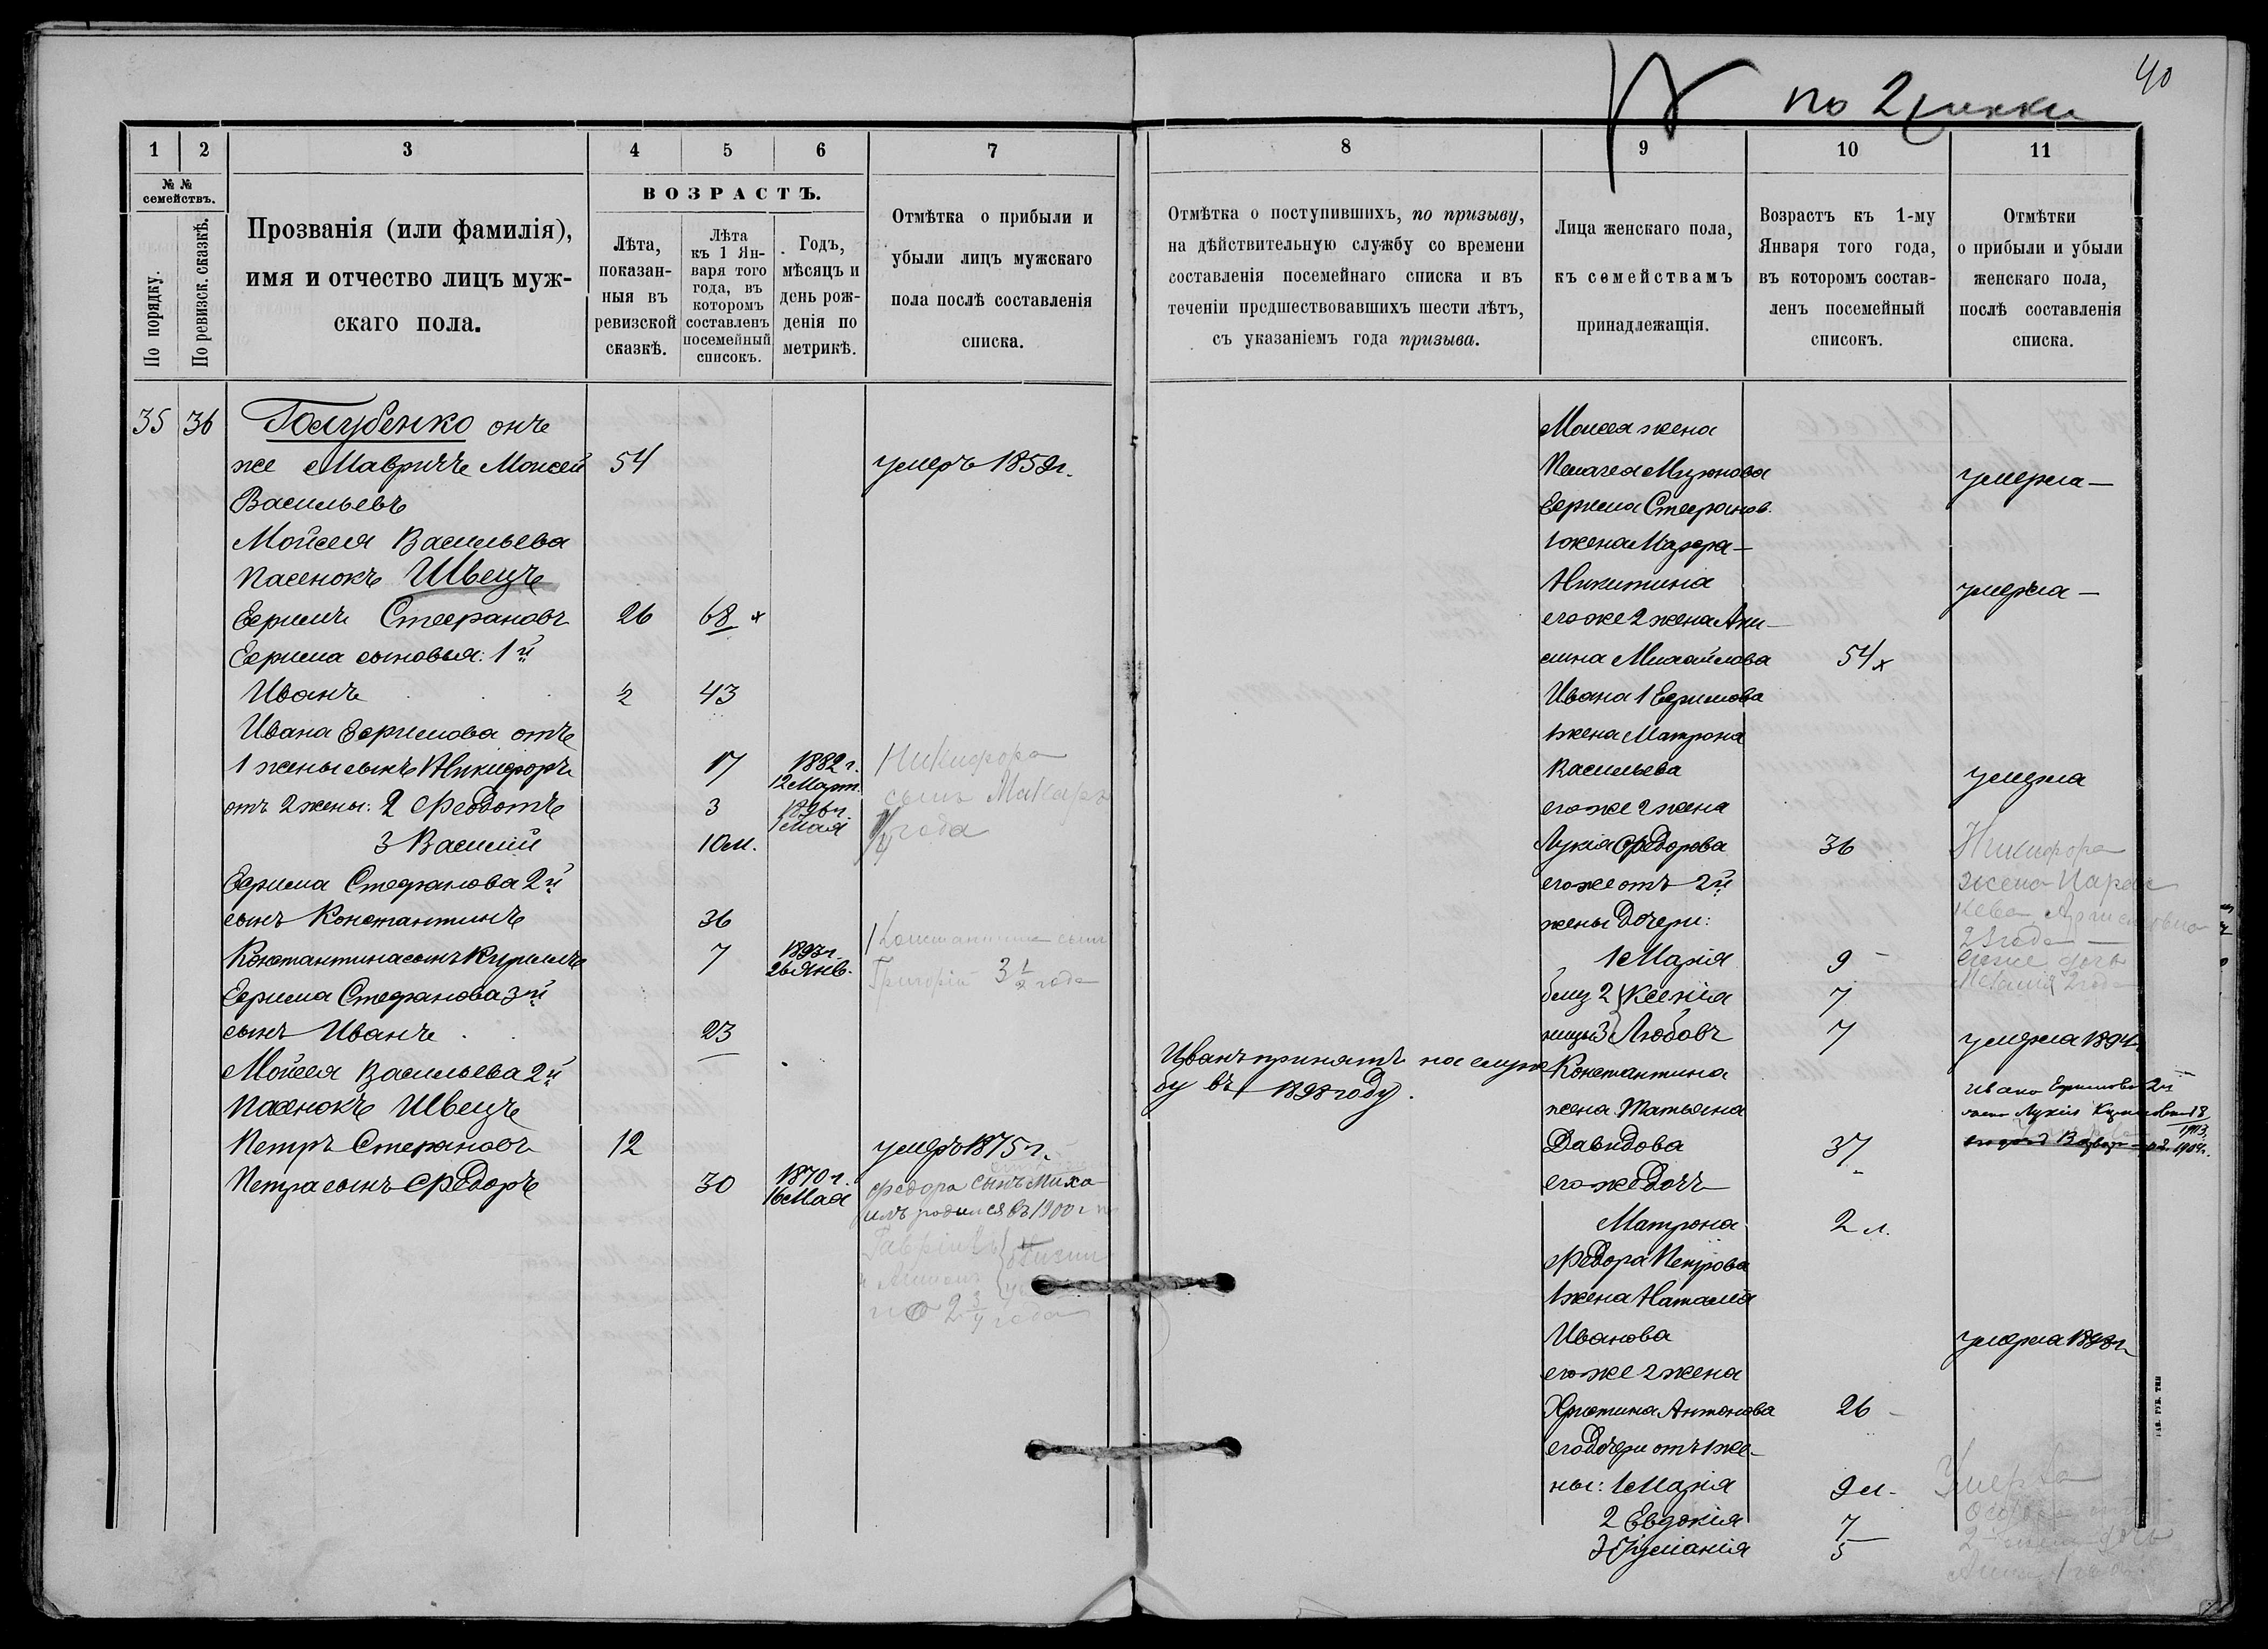 40
по 2
1
2
3
4
5
6
7
№ №
семействъ.
По порядку.
По ревизск. сказкѣ.
Прозванія (или фамилія),
имя и отчество лицъ муж-
скаго пола.
ВОЗРАСТЪ.
Лѣта,
показан-
ныя въ
ревизской
сказкѣ.
Лѣта
къ 1 Ян-
варя того
года, въ
которомъ
составленъ
посемейный
списокъ.
Годъ,
мѣсяцъ и
день рож-
денія по
метрикѣ.
Отмѣтка о прибыли и
убыли лицъ мужскаго
пола послѣ составленія
списка.
35 36 Голубенко онъ
же Мавричъ Моисей 54 умеръ 1859г.
Васильевъ
Мойсея Васильева
пасенокъ Швецъ
Ефримъ Стефановъ 26 68 х
Ефрима сыновья: 1й
Иванъ 1/2 43
Ивана Ефримова отъ
1 жены сынъ Никифоръ 17 1882 г.
12 Март.
Никифора
сынъ Макаръ
года
отъ 2 жены: 2 Феодотъ 3 1896г.
1 Мая
3 Василий 10 м.
Ефрима Стефанова 2й
сынъ Константинъ 36
Константина сынъ Кирилъ 7 1893г.
26 Янв.
Константина сынъ
Григорій 3 1/2 года
Ефрима Стефанова 3й
сынъ Иванъ 23
Мойсея Васильева 2й
пасенокъ Швецъ
Петръ Стефановъ 12 умеръ 1875 г.
Петра сынъ Федоръ 30 1870 г.
16 Мая
Федора сынъ Миха-
илъ родился въ 1900 г
Гавріилъ
по 2 3/4 года
8
9
10
11
Отмѣтка о поступившихъ, по призыву,
на дѣйствительную службу со времени
составленія посемейнаго списка и въ
теченіи предшествовавшихъ шести лѣтъ,
съ указаніемъ года призыва.
Лица женскаго пола,
къ семействамъ
принадлежащія.
Возрастъ къ 1-му
Января того года,
въ которомъ состав-
ленъ посемейный
списокъ.
Отмѣтки
о прибыли и убыли
женскаго пола,
послѣ составленія
списка.
Моисея жена
Пелагея Миронова умерла —
Ефрима Стефанов.
1 жена Марфа —
Никитина умерла —
его же 2 жена Ани-
сина Михайлова 54 х
Ивана 1 Ефримова
1 жена Матрона
Васильева умерла
его же 2 жена
Лукія Федорова 36
Никифора
жена Парас
кева
23 года —
его же отъ 2й
жены дочери:
1 Марія 9 —
дочь
2 года
близ 2 Ксенія 7
ницы 3 Любовъ 7 умерла 1894
Иванъ принятъ на служ
бу въ 1898 году.
Константина
жена Татьяна
Давидова 37
Ивана Ефримова 2й
жена Лукія
1903
1904г.
его же дочь
Матрона 2 л.
Федора Петрова
1 жена Наталія
Иванова умерла 1898г.
его же 2 жена
Христина Антонова 26 —
его дочери отъ 1 же-
ны: 1 Марія 9 л. Умерла
2 Евдокія 7
3 5
дочь
1 года